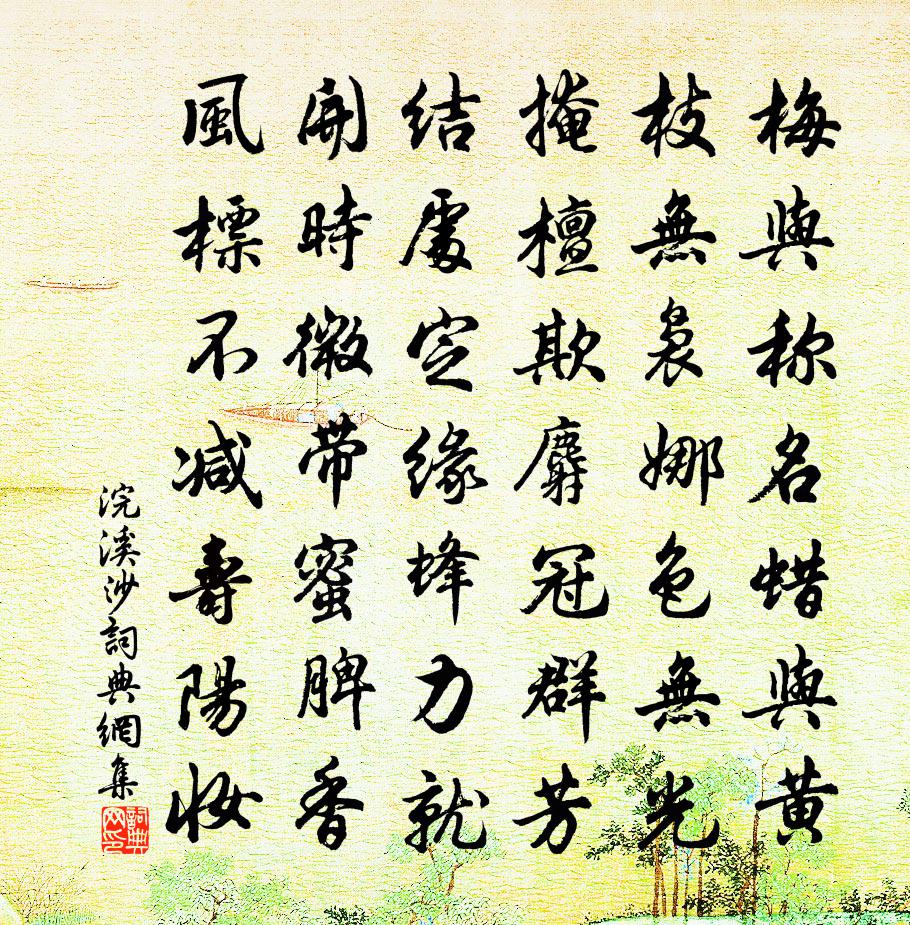 梅與称名蜡與黄
枝無裊娜色無光
掩檀欺麝冠群芳
結處定緣蜂力就
開時微带蜜脾香
風標不減壽陽妝
浣溪沙詞典網集
詞典网印